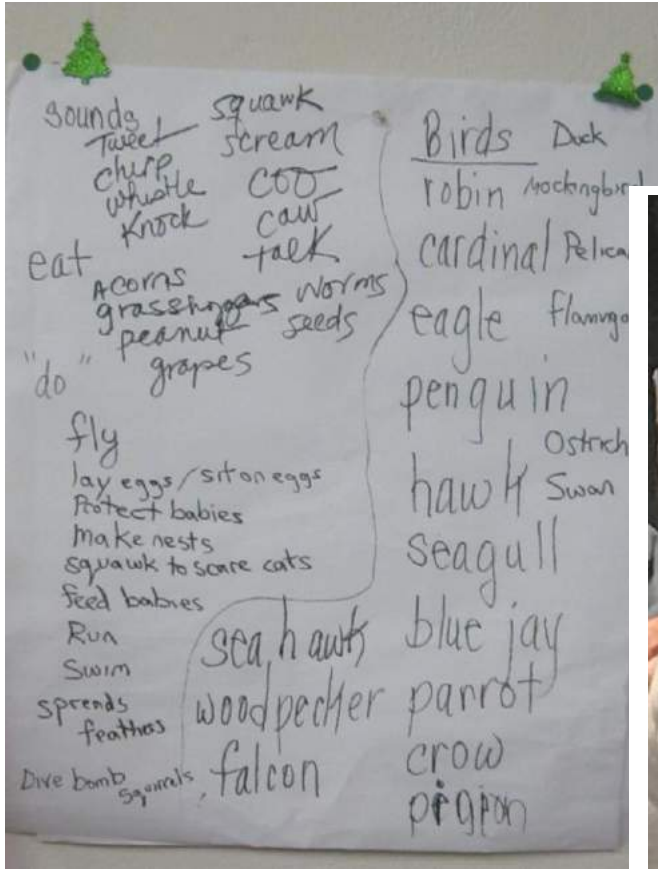 sounds
Tweet
chirp
whistle
Knock
squawk
scream
coo
caw
talk
eat
Acorns
grasshoppers
peanut
grapes
worms
seeds
"do"
fly
lay eggs/sit on eggs
Protect babies
make nests
squawk to scare cats
feed babies
Run
Swim
sprends
feathers
Dive bomb
squirrels
Birds
robin
cardinal
eagle
penguin
hawk
seagull
blue jay
parrot
crow
pigeon
Duck
Mockingbird
Pelica
flamingo
Ostrich
Swan
sea hawk
woodpecker
falcon